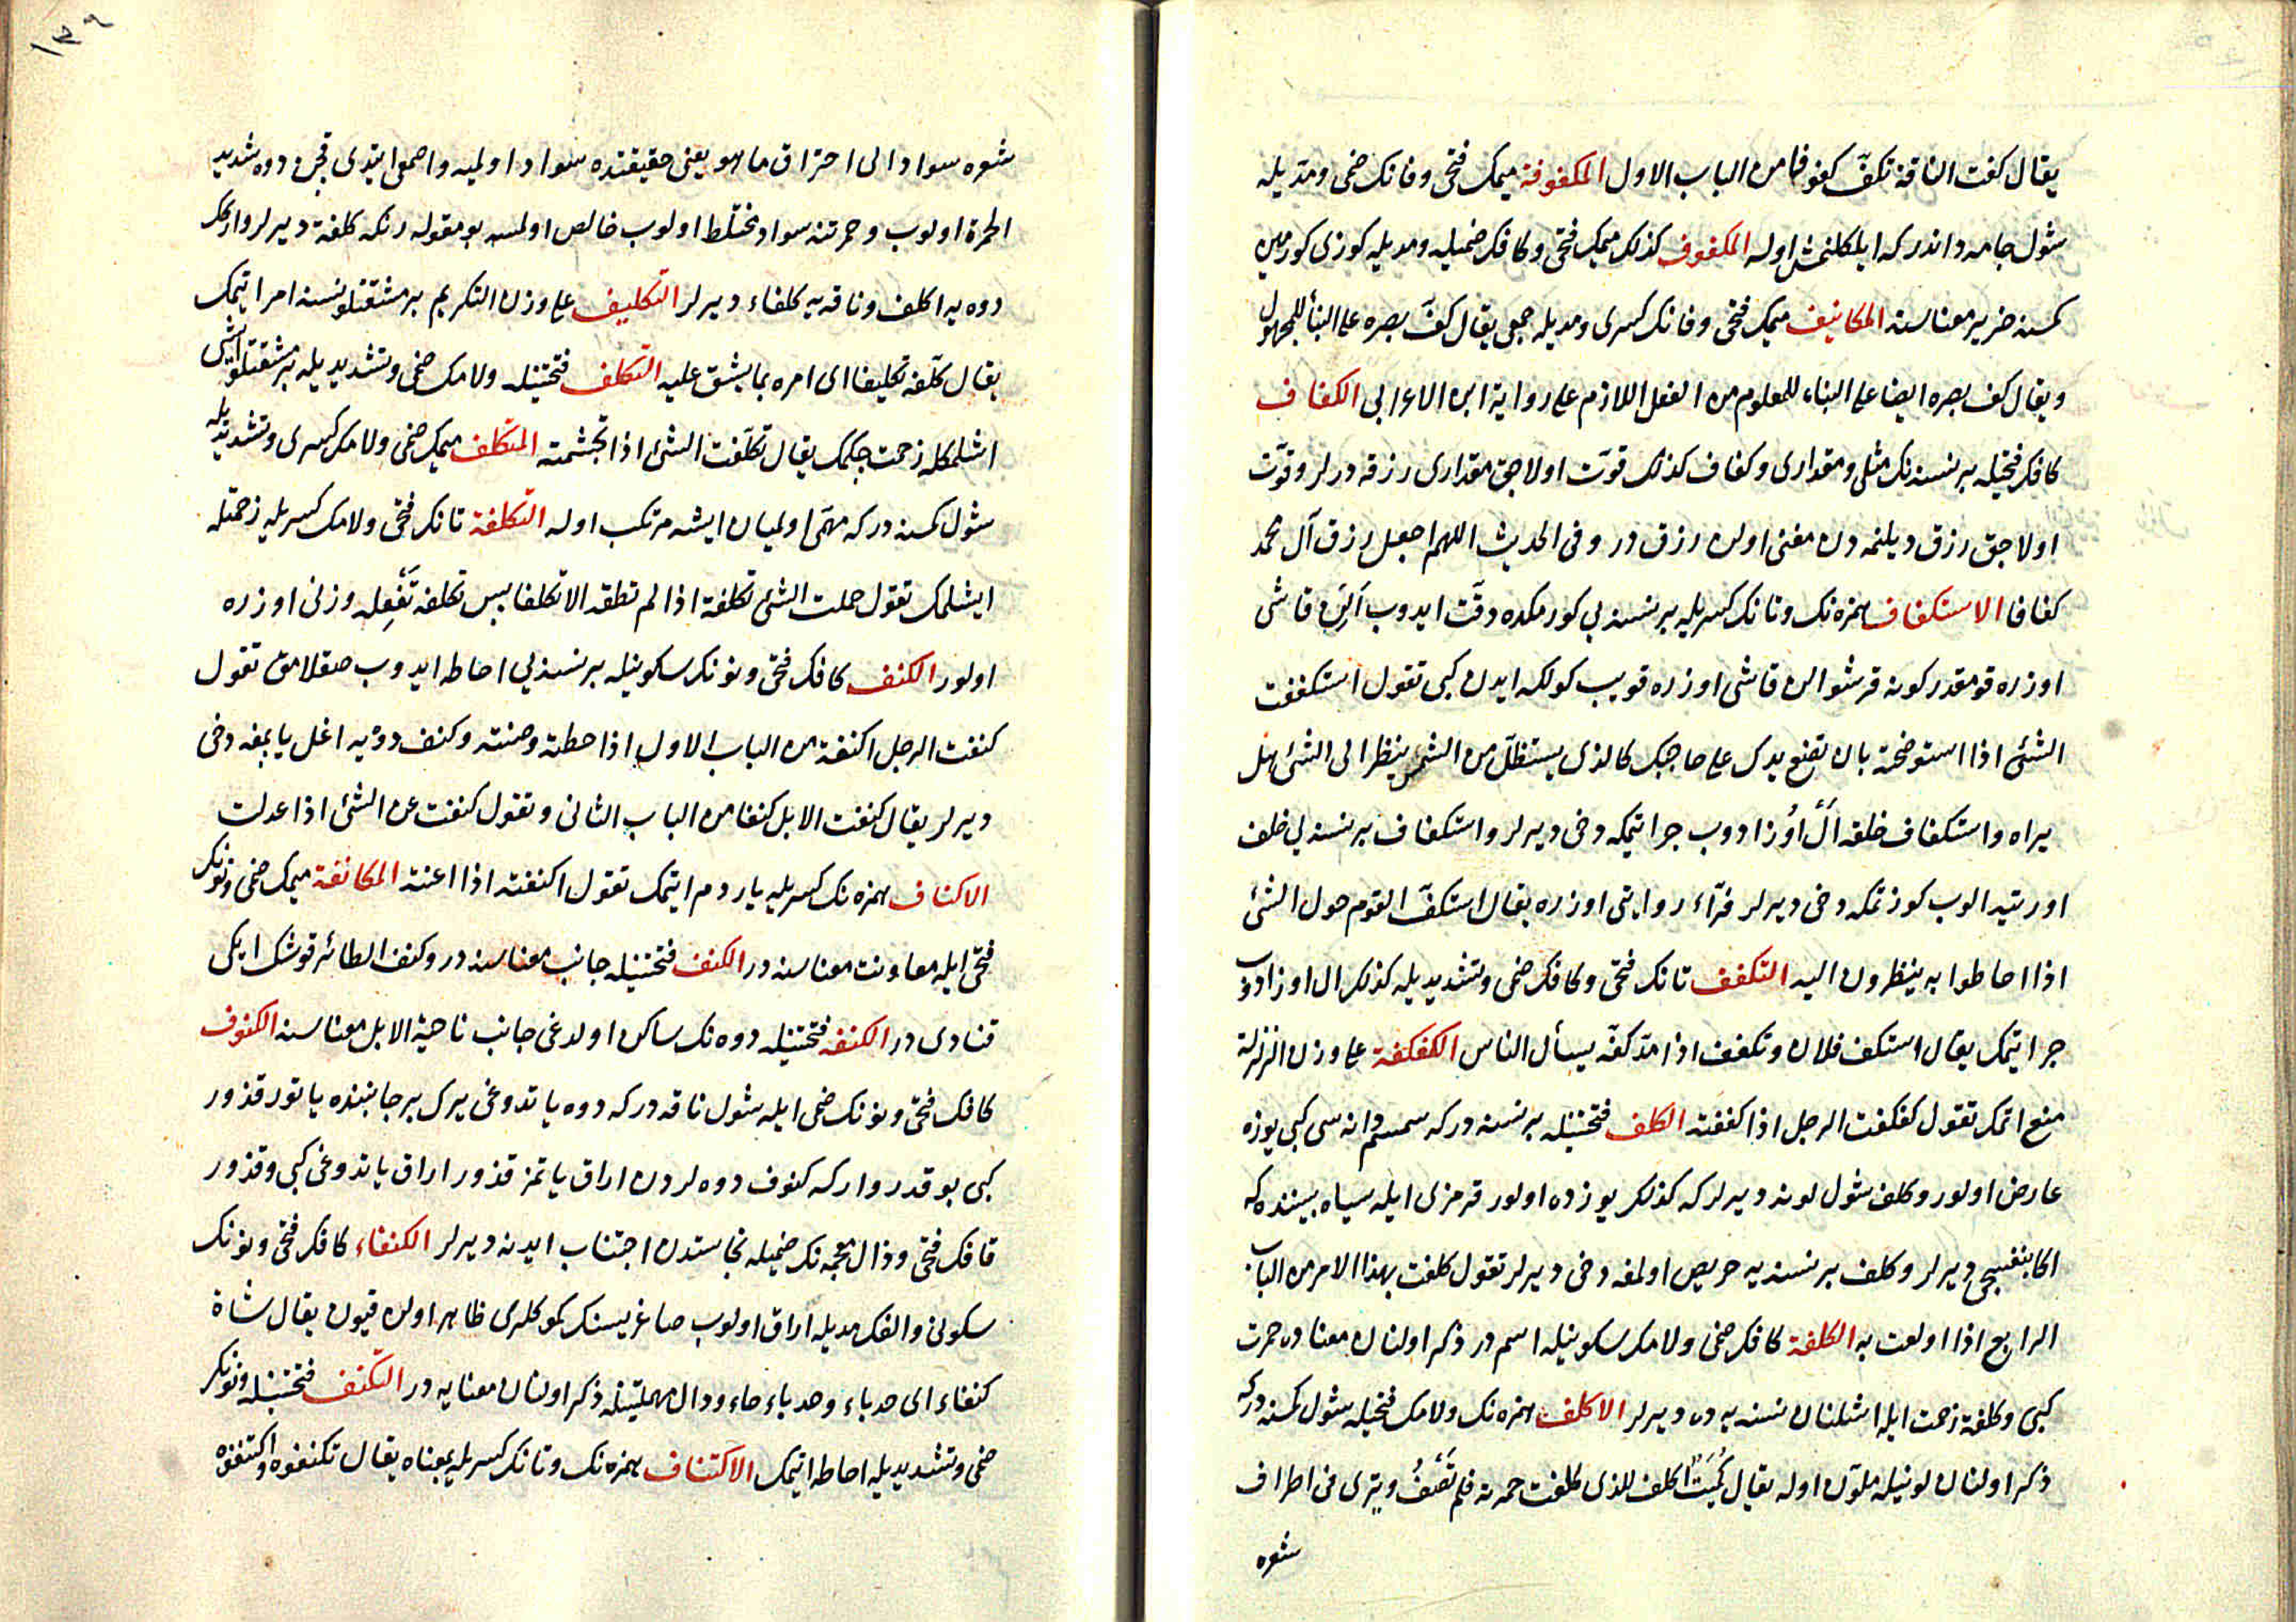 يقال كفت الناقة تكفّ كفوفا من الباب الاول المكفوفة ميمك فتحى وفانك ضمى ومديله
شول جامه داندركه ايلكلنمش اوله المكفوف كذلك ميمك فتحى وكافك ضميله ومديله كوزى كورمين
كمسنه ضرير معناسنه المكافيف ميمك فتحى وفانك كسرى ومديله جمعى يقال كفّ بصره على البناء للمجهول
ويقال كف بصره ايضا على البناء للمعلوم من الفعل اللازم على رواية ابن الاعرابى الكفاف
كافك فتحيله بر نسنه نك مثلى ومقدارى وكفاف كذلك قوت اولاجق مقدارى رزقه درلر وقوت
اولاجق رزق ديلنمه دن مغنى اولن رزق در وفى الحديث اللهم اجعل رزق آل محمد
كفافا الاستكفاف همزه نك وتانك كسريله بر نسنه يى كورمكده دقت ايدوب الين قاشى
اوزره قومقدر كونه قرشو الن قاشى اوزره قويب كولكه ايدن كبى تقول استكففت
الشئ اذا استوضحته بان تضع يدك على حاجبك كالذى يستظلّ من الشمس ينظر الى الشئ هل
يراه واستكفاف خلقه ال اوزادوب جر ايتمكه دخى ديرلر واستكفاف بر نسنه يى خلق
اورتيه الوب كوزتمكه دخى ديرلر فرّاء روايتى اوزره يقال استكفّ القوم حول الشئ
اذا احاطوا به ينظرون اليه التكفف تانك فتحى وكافك ضمى وتشديديله كذلك ال اوزادوب
جر ايتمك يقال استكف فلان وتكفف اذا مدّ كفّه يسأل الناس الكفكفة على وزن الزلزلة
منع اتمك تقول كفكفت الرجل اذا كففته الكلف فتحتينله بر نسنه در كه سمسم دانه سى كبى يوزه
عارض اولور وكلف شول لونه ديرلر كه كذلك يوزده اولور قرمزى ايله سياه بيننده كه
اكا بنفسجى ديرلر وكلف بر نسنه يه حريص اولمغه دخى ديرلر تقول كلفت بهذا الامر من الباب
الرابع اذا اولعت به الكلفة كافك ضمى ولامك سكونيله اسم در ذكر اولنان معنادن حمرت
كبى وكلفة زحمت ايله اشلنان نسنه يه ده ديرلر الاكلف همزه نك ولامك فتحيله شول كمسنه در كه
ذكر اولنان لونيله ملوّن اوله يقال كُمَيْت اكلف للذى كلفت حمرته فلم تَصْفُ ويرى فى اطراف
شعره
١٣٩
شعره سواد الى احتراق ما هو يعنى حقيقتده سواد اولميه واصمعى ايتدى قچن دوه شديد
الحمرة اولوب وحمرتنه سواد مختلط اولوب خالص اولمسه بو مقوله رنكه كلفة ديرلر وارك
دوه يه اكلف وناقه يه كلفاء ديرلر التكليف على وزن التكريم بر مشقتلو نسنه امر ايتمك
يقال كلّفه تكليفا اى امره بما يشق عليه التكلف فتحتينله ولامك ضمى وتشديديله بر مشقتلو ايشى
اشلمكله زحمت چكمك يقال تكلّفت الشئ اذا تجشمته المتكلف ميمك ضمى ولامك كسرى وتشديديله
شول كمسنه در كه مهمّى اولميان ايشه مرتكب اوله التكلفة تانك فتحى ولامك كسريله زحمتله
ايشلمك تقول حملت الشئ تكلفة اذا لم تطقه الا تكلفا پس تكلفه تَفْعِله وزنى اوزره
اولور الكنف كافك فتحى ونونك سكونيله بر نسنه يى احاطه ايدوب صقلامق تقول
كنفت الرجل اكنفه من الباب الاول اذا حطته وصنته وكنف دوه يه اغل ياپمغه دخى
ديرلر يقال كنفت الابل كنفا من الباب الثانى وتقول كنفت عن الشئ اذا عدلت
الاكناف همزه نك كسريله ياردم ايتمك تقول اكنفته اذا اعنته المكانفة ميمك ضمى ونونك
فتحى ايله معاونت معناسنه در الكنف فتحتينله جانب معناسنه در وكنف الطائر قوشك ايكى
قنادى در الكنفه فتحتينله دوه نك ساكن اولدغى جانب ناحية الابل معناسنه الكنوف
كافك فتحى ونونك ضمى ايله شول ناقه در كه دوه ياتدوغى يرك بر جانبنده ياتور قذور
كبى بو قدر وار كه كنوف دوه لردن اراق ياتمز قذور اراق ياتدوغى كبى وقذور
قافك فتحى وذال معجمه نك ضميله نجاستدن اجتناب ايدنه ديرلر الكنفاء كافك فتحى ونونك
سكونى والفك مديله اراق اولوب صاغريسنك كموكلرى ظاهر اولان قيون يقال شاة
كنفاء اى حدباء وحدباء حاء ودال مهملتينله ذكر اولنان معنايه در التكنف فتحتينله ونونك
ضمى وتشديديله احاطه ايتمك الاكتناف همزه نك وتانك كسريله بمعناه يقال تكنفوه واكتنفوه